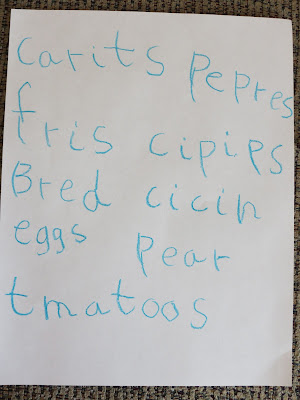 carits pepres
fris cipips
Bred cicin
eggs pear
tmatoos